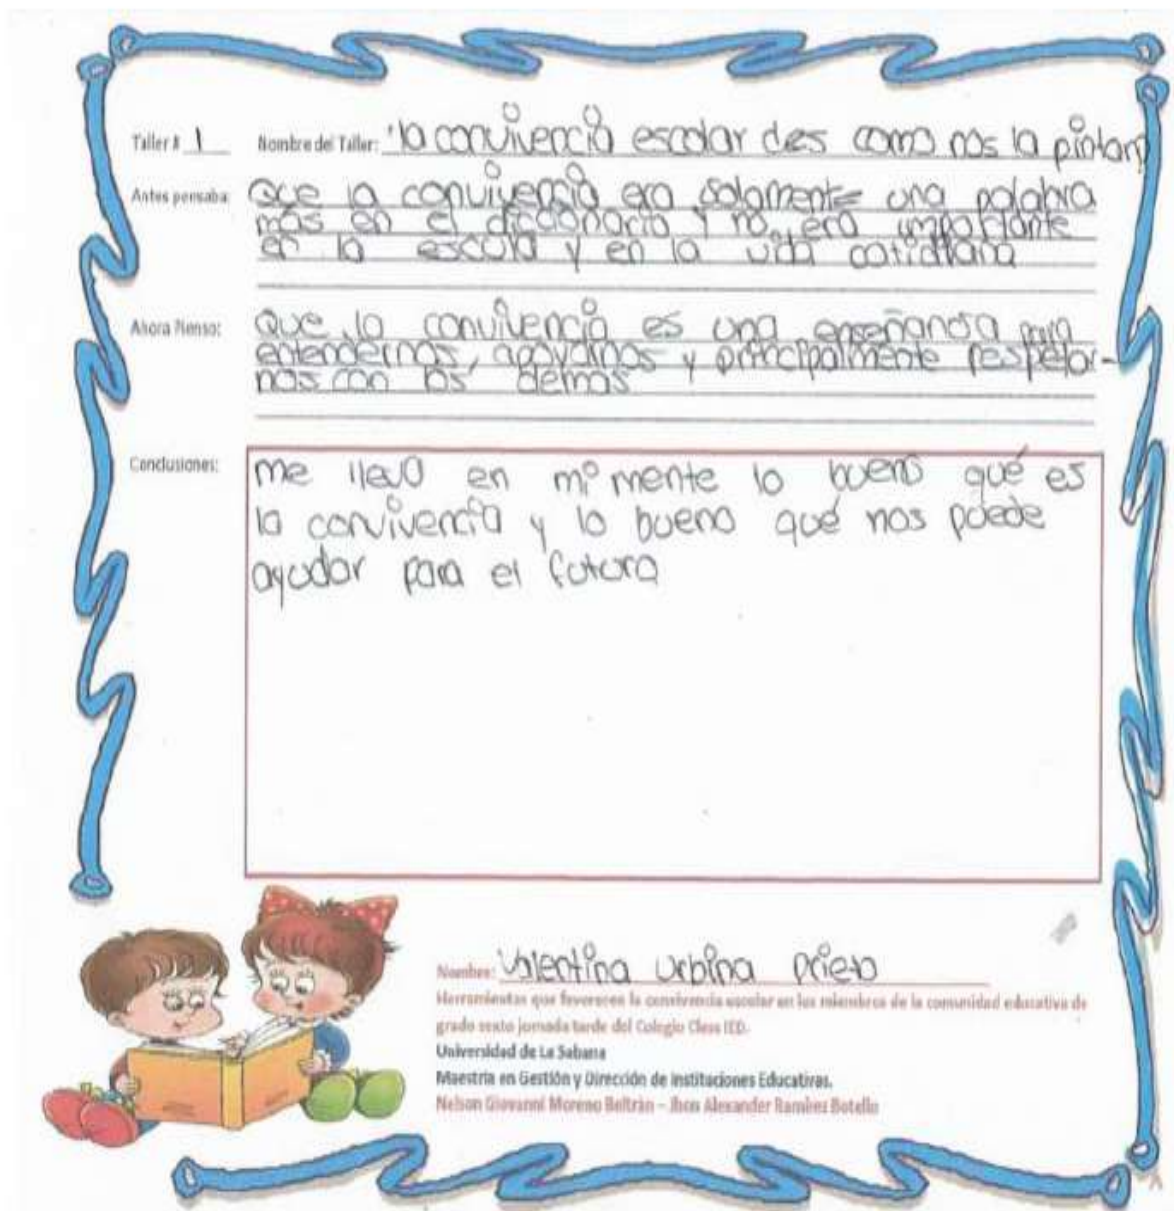 Taller # 1 Nombre del Taller: "la convivencia escolar ¿es como nos la pintan
Antes pensaba: Que la convivencia era solamente una palabra
más en el diccionario y no, era importante
en la escula y en la vida cotidiana
Ahora Pienso: Que la convivencia es una enseñanza para
entendernos, apoyarnos y principalmente respetar-
nos con los demás
Conclusiones: me llevo en mi mente lo bueno qué es
la convivencia y lo bueno qué nos puede
ayudar para el futuro
Nombre: Valentina Urbina Prieto
Herramientas que favorecen la convivencia escolar en los miembros de la comunidad educativa de
grado sexto jornada tarde del Colegio Class IED.
Universidad de La Sabana
Maestría en Gestión y Dirección de instituciones Educativas.
Nelson Giovanni Moreno Beltrán – Jhon Alexander Ramírez Botello